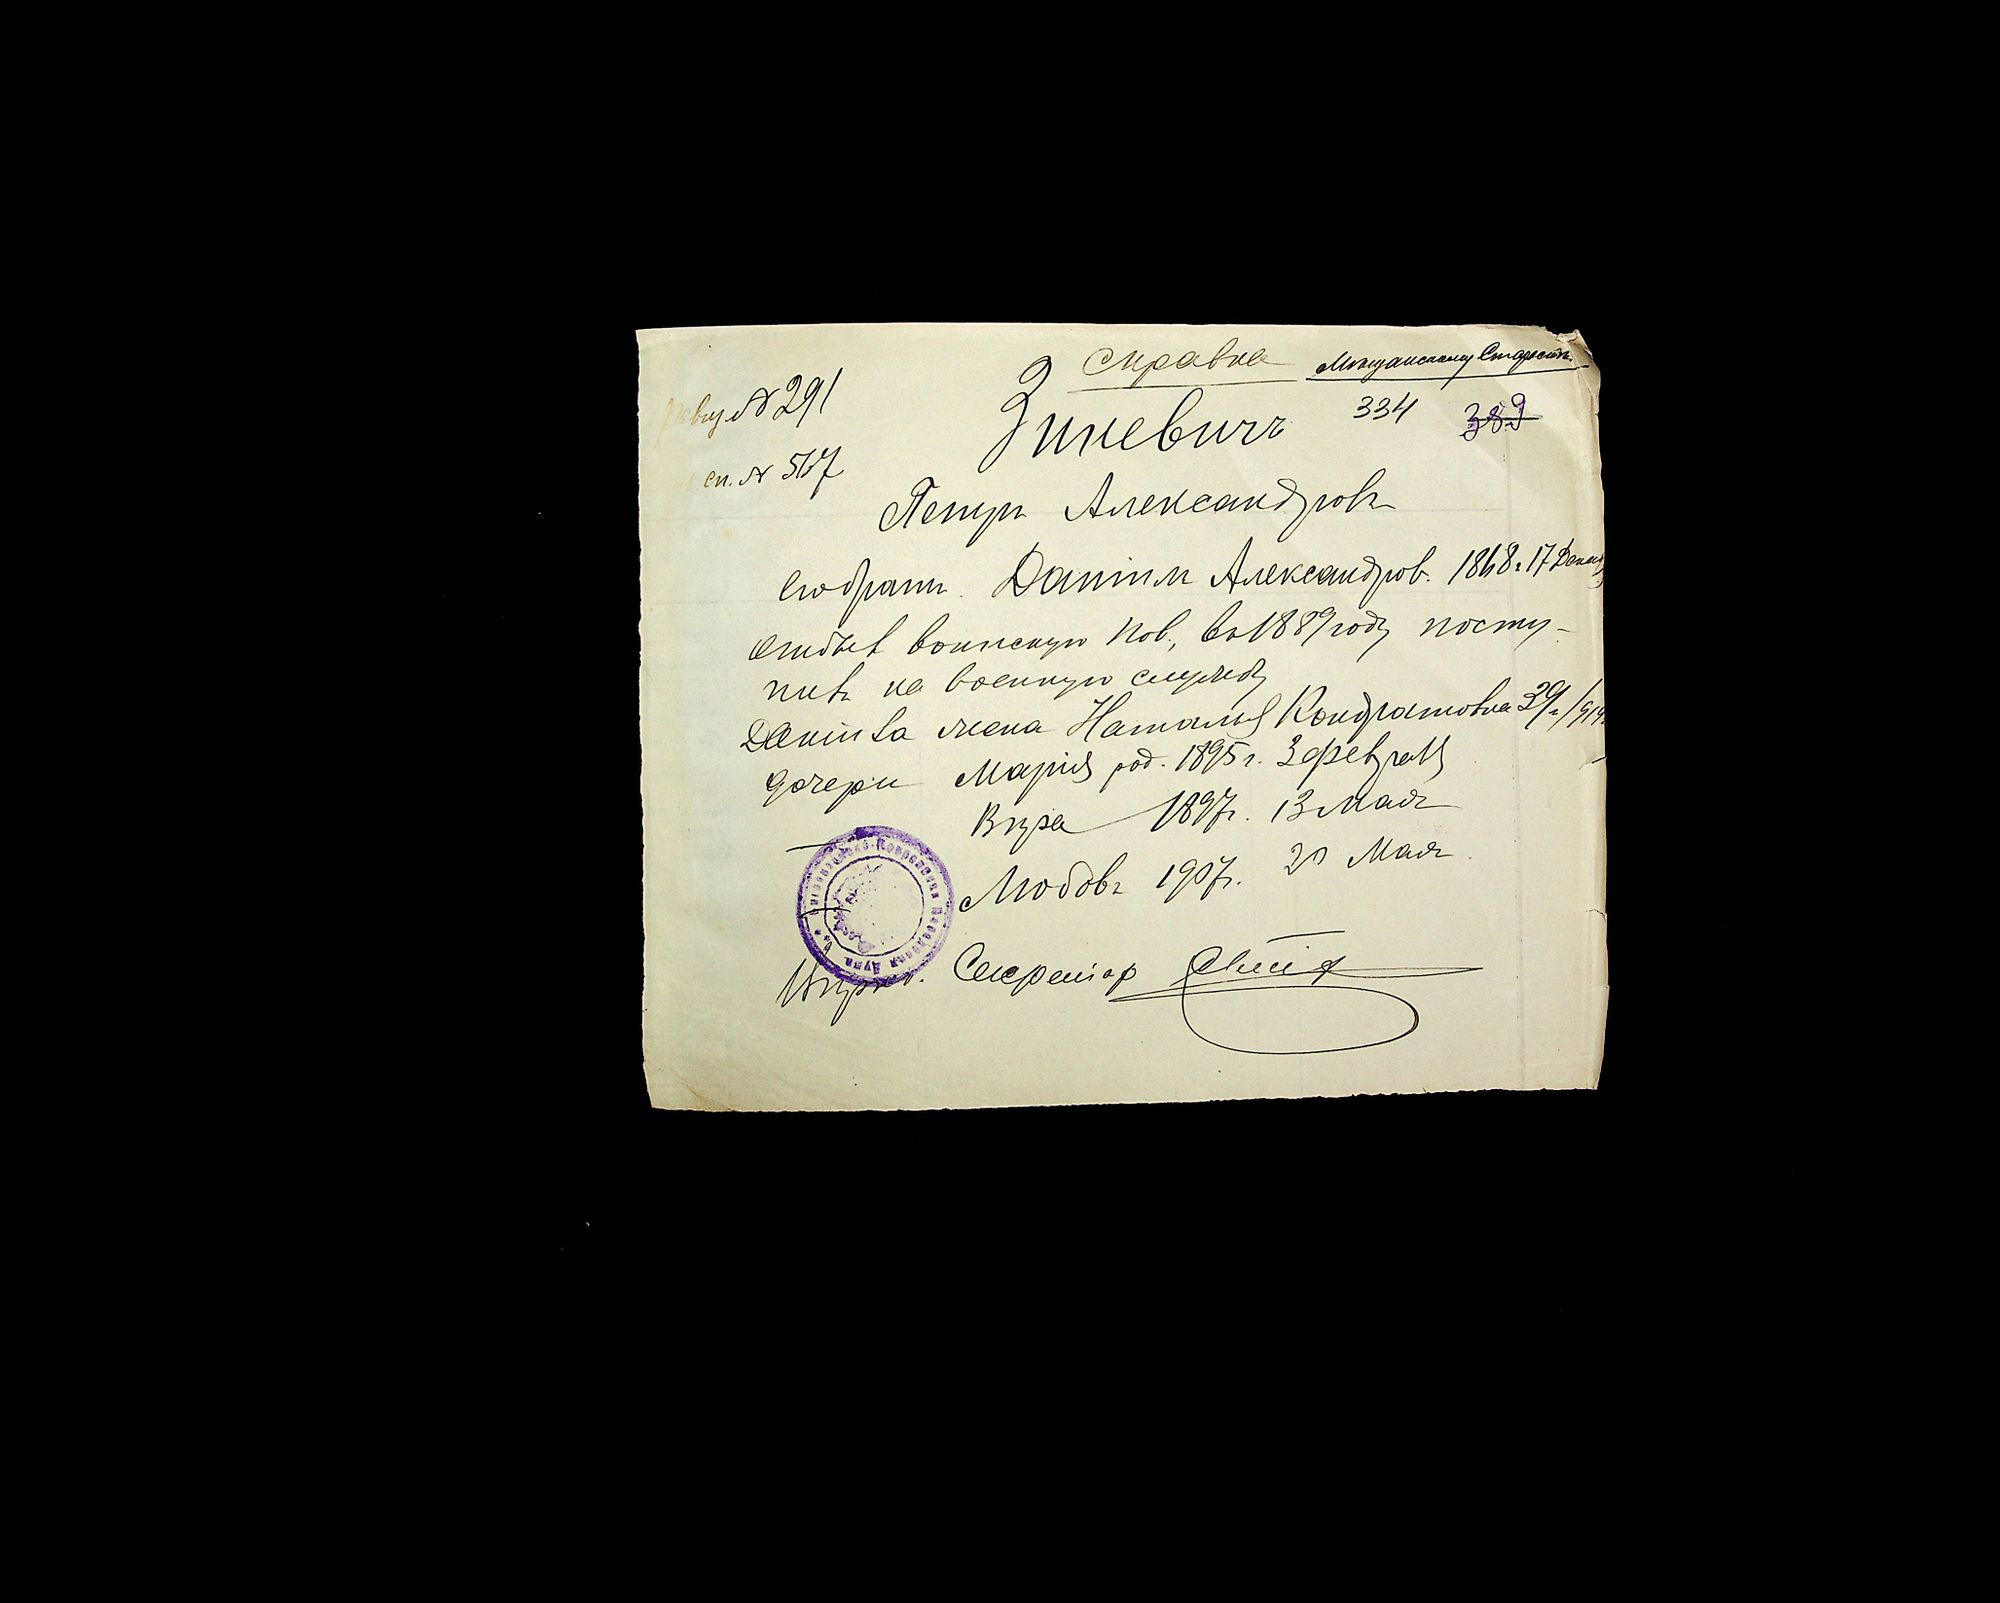 Справка Мѣщанскому Старостѣ
ревиз № 291
Зиневичъ 334 389
сп. № 517
Петръ Александровъ
Его братъ Даніилъ Александров. 1868 г. 17 Декаб
отбыв воинскую пов., въ 1889 году посту-
пивъ на военную службу
Даніила жена Наталія Кондратовна 39 л.
дочери Марія род. 1895 г. 3 февраля
Вѣра 1897 г. 13 Мая
Любовь 1907 г. 20 Мая
Секретар
Городская Дума